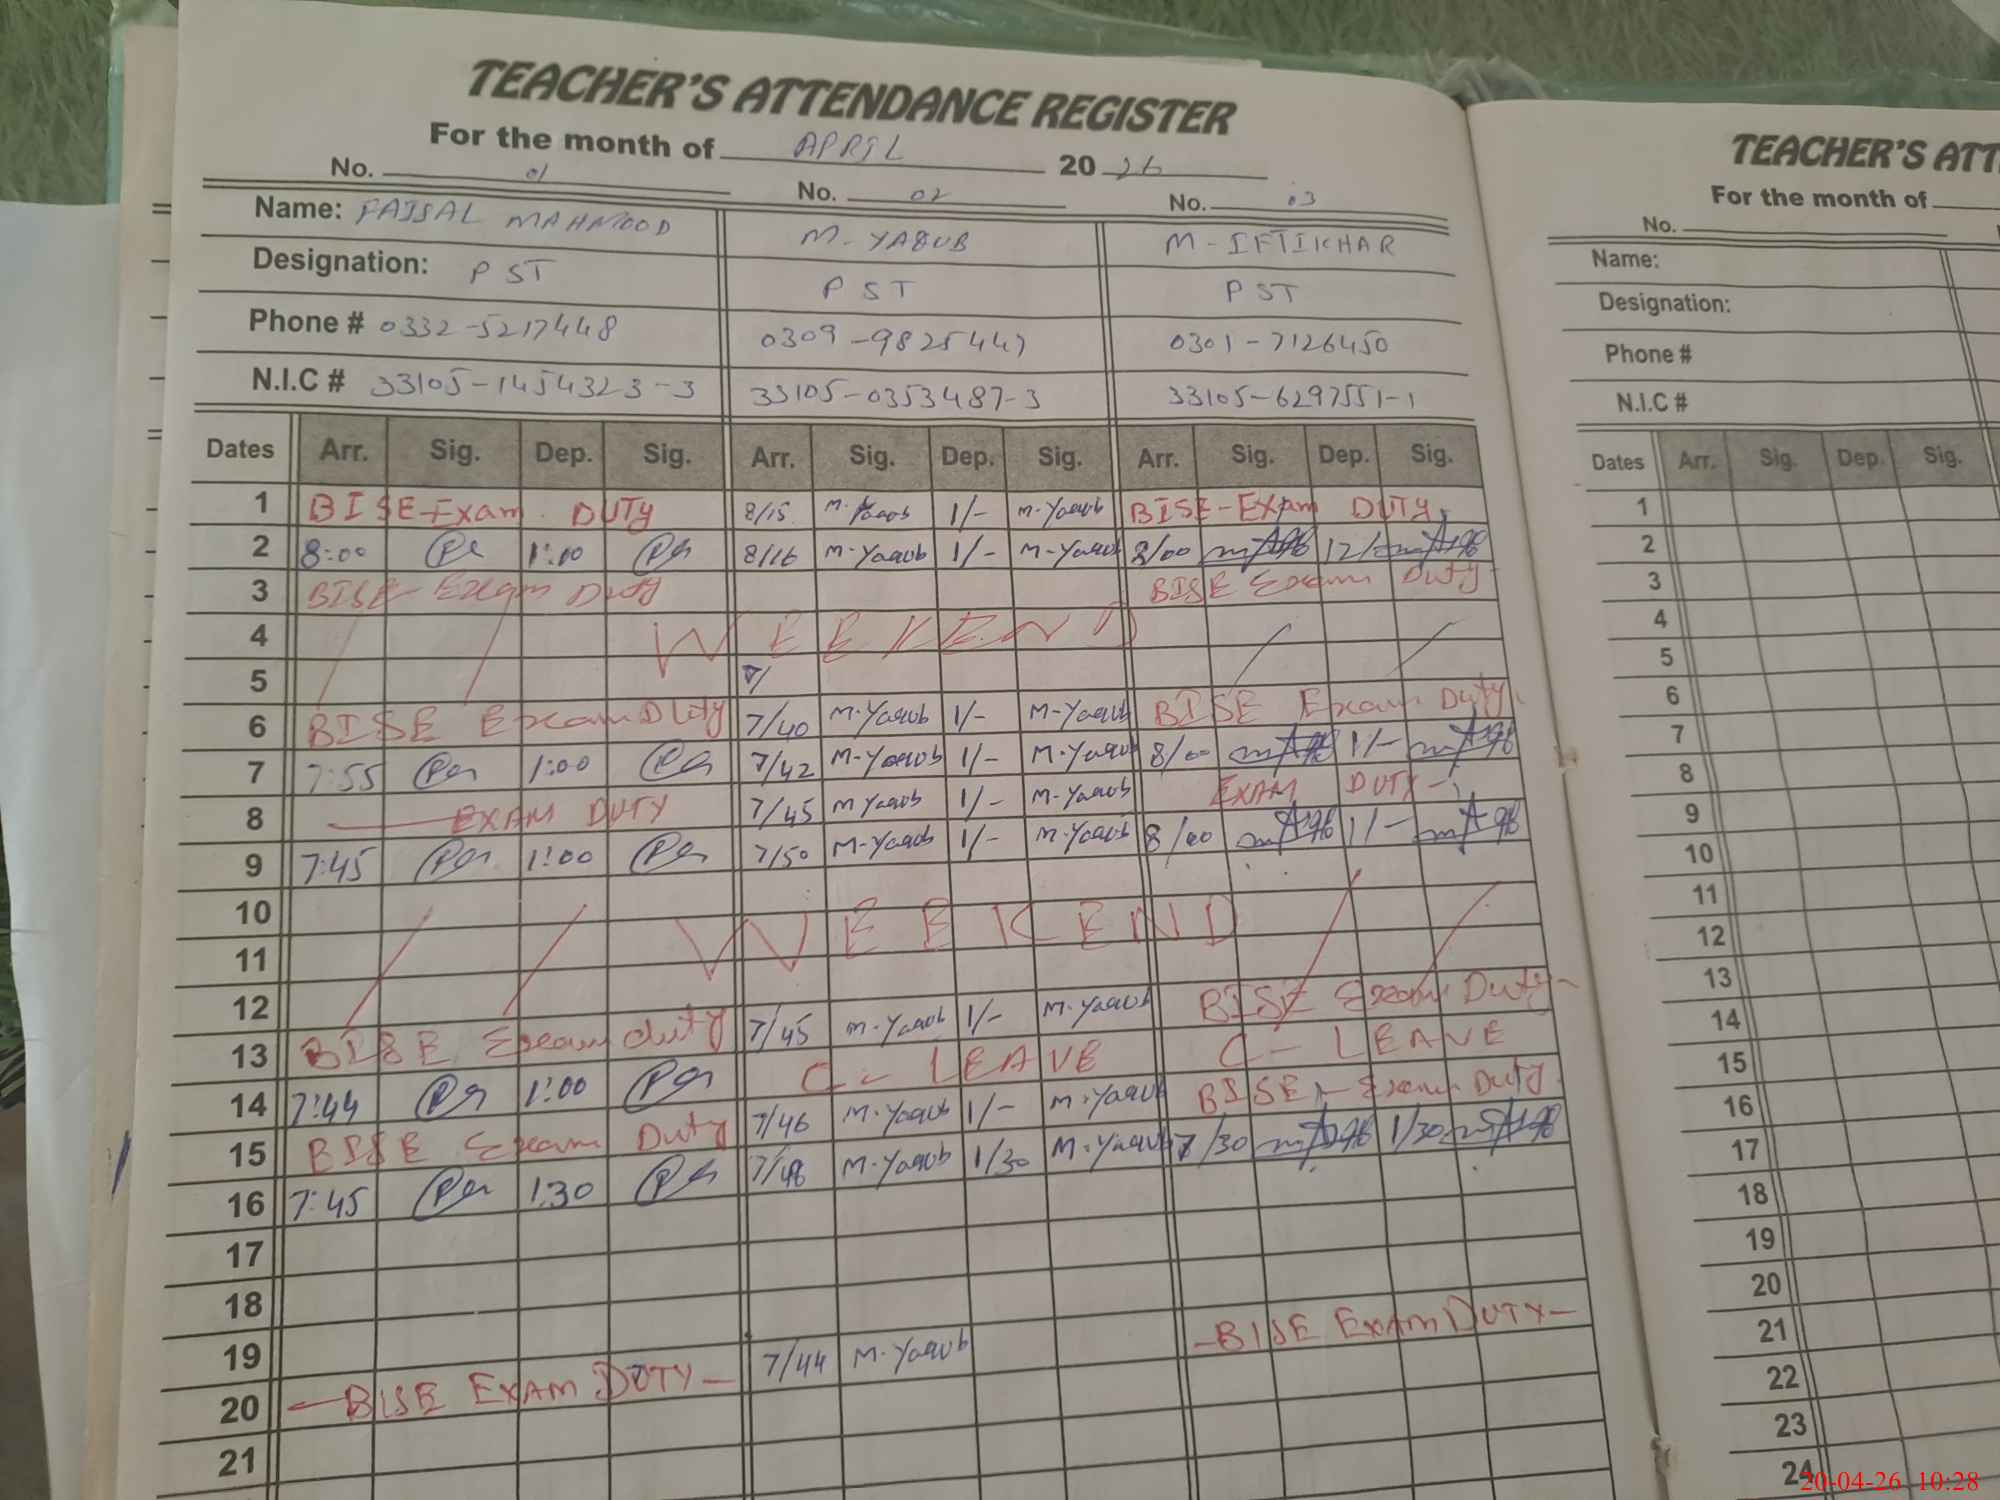 TEACHER'S ATTENDANCE REGISTER
For the month of APRIL 2026
No. 01 No. 02 No. 03
Name: FAISAL MAHMOOD M-YAQUB M-IFTIKHAR
Designation: PST PST PST
Phone # 0332-5217448 0309-9825447 0301-7126450
N.I.C # 33105-1454323-3 33105-0353487-3 33105-6297551-1
Dates Arr. Sig. Dep. Sig. Arr. Sig. Dep. Sig. Arr. Sig. Dep. Sig.
1 BISE-Exam DUTY 8/15 M.Yaqub 1/- M.Yaqub BISE-Exam DUTY
2 8:00 1:00 8/16 M-Yaqub 1/- M-Yaqub 8/00 12/
3 BISE-Exam Duty BISE Exam Duty
4 WEEKEND
5 7/
6 BISE Exam Duty 7/40 M-Yaqub 1/- M-Yaqub BISE Exam Duty
7 7:55 1:00 7/42 M-Yaqub 1/- M-Yaqub 8/00 1/-
8 EXAM DUTY 7/45 M Yaqub 1/- M-Yaqub EXAM DUTY-
9 7:45 1:00 7/50 M-Yaqub 1/- M.Yaqub 8/00 1/-
10 WEEKEND
11
12
13 BISE Exam duty 7/45 M.Yaqub 1/- M.Yaqub BISE Exam Duty-
14 7:44 1:00 C- LEAVE C- LEAVE
15 BISE Exam Duty 7/46 M.Yaqub 1/- M.Yaqub BISE- Exam Duty
16 7:45 1:30 7/48 M.Yaqub 1/30 M.Yaqub 7/30 1/30
17
18
19
20 -BISE EXAM DUTY- 7/44 M.Yaqub -BISE EXAM DUTY-
21
TEACHER'S ATT
For the month of
No.
Name:
Designation:
Phone #
N.I.C #
Dates Arr. Sig. Dep. Sig.
1
2
3
4
5
6
7
8
9
10
11
12
13
14
15
16
17
18
19
20
21
22
23
24
20-04-26 10:28